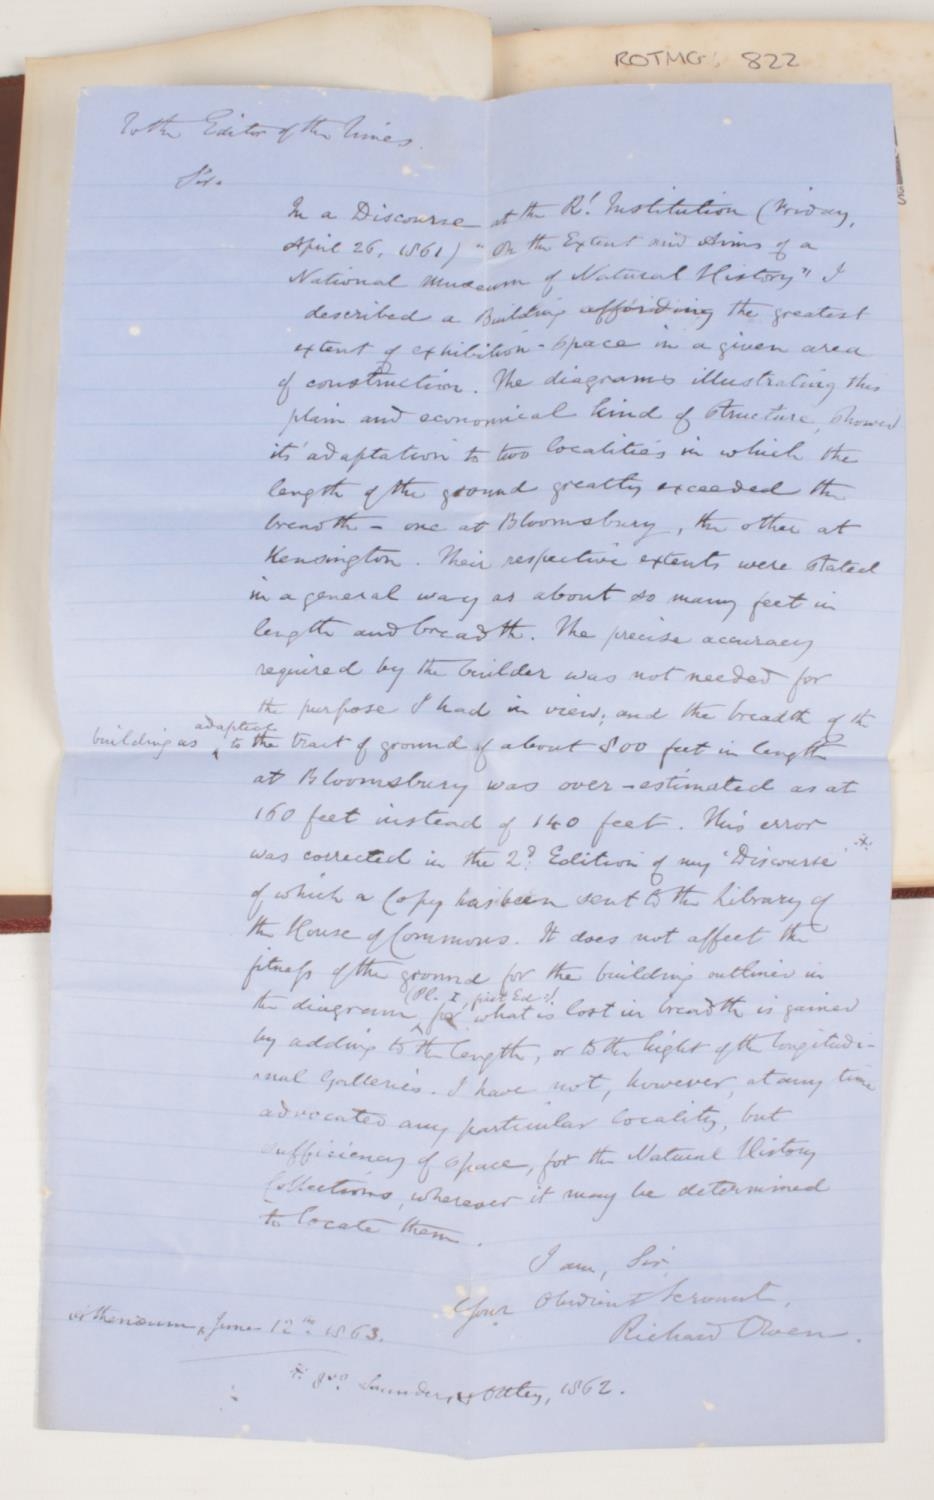 ROTMG: 822
To the Editor of the Times.
Sir.
In a Discourse at the Rl. Institution (Friday,
April 26, 1861) "On the Extent and Aims of a
National Museum of Natural History" I
described a Building affording the greatest
extent of exhibition-space in a given area
of construction. The diagrams illustrating this
plain and economical kind of structure, showed
its adaptation to two localities in which the
length of the ground greatly exceeded the
breadth - one at Bloomsbury, the other at
Kensington. Their respective extents were stated
in a general way as about so many feet in
length and breadth. The precise accuracy
required by the builder was not needed for
the purpose I had in view; and the breadth of the
building as adapted to the tract of ground of about 800 feet in length
at Bloomsbury was over-estimated as at
160 feet instead of 140 feet. This error
was corrected in the 2d Edition of my 'Discourse' *
of which a Copy has been sent to the Library of
the House of Commons. It does not affect the
fitness of the ground for the building outlined in
the diagram (Pl. I, first Edn.), for what is lost in breadth is gained
by adding to the length, or to the hight of the longitudi-
-nal Galleries. I have not, however, at any time
advocated any particular locality, but
sufficiency of space, for the Natural History
Collections, wherever it may be determined
to locate them.
I am, Sir,
Your Obedient Servant,
Richard Owen.
Athenæum, June 12th 1863.
* 8vo. Saunders & Otley, 1862.